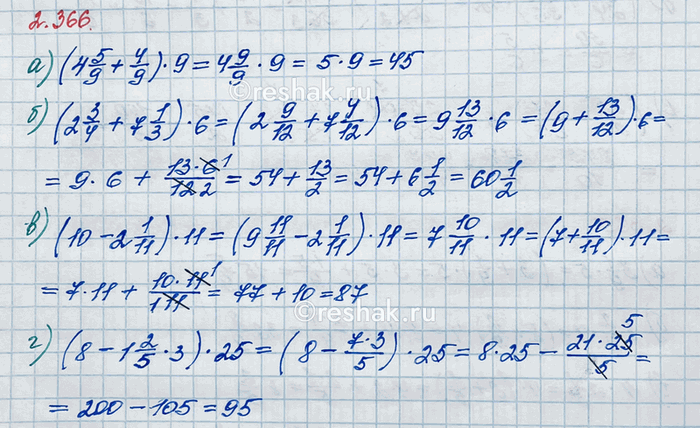 2.366.
а) (4 5/9 + 4/9) · 9 = 4 9/9 · 9 = 5 · 9 = 45
reshak.ru
б) (2 3/4 + 7 1/3) · 6 = (2 9/12 + 7 4/12) · 6 = 9 13/12 · 6 = (9 + 13/12) · 6 =
= 9 · 6 + 13 · 6 1/12 2 = 54 + 13/2 = 54 + 6 1/2 = 60 1/2
в) (10 − 2 1/11) · 11 = (9 11/11 − 2 1/11) · 11 = 7 10/11 · 11 = (7 + 10/11) · 11 =
= 7 · 11 + 10 · 11 1/1 11 = 77 + 10 = 87
reshak.ru
г) (8 − 1 2/5 · 3) · 25 = (8 − 7 · 3/5) · 25 = 8 · 25 − 21 · 25 5/5 =
= 200 − 105 = 95